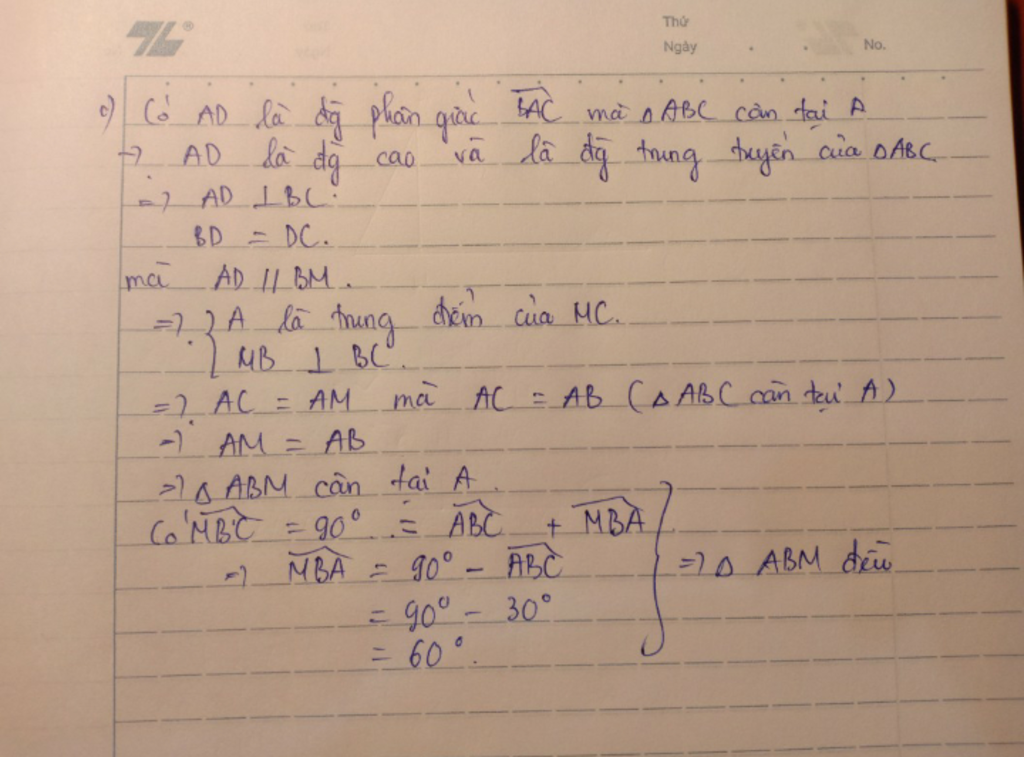 Thứ
Ngày . . No.
c) Có AD là đg̅ phân giác BAC mà △ABC cân tại A
→ AD là đg̅ cao và là đg̅ trung tuyến của △ABC.
=> AD ⊥ BC.
BD = DC.
mà AD // BM.
=> { A là trung điểm của MC.
MB ⊥ BC.
=> AC = AM mà AC = AB (△ABC cân tại A)
=> AM = AB
=> △ABM cân tại A.
Có MBC = 90° = ABC + MBA
=> MBA = 90° - ABC => △ ABM đều
= 90° - 30°
= 60°.